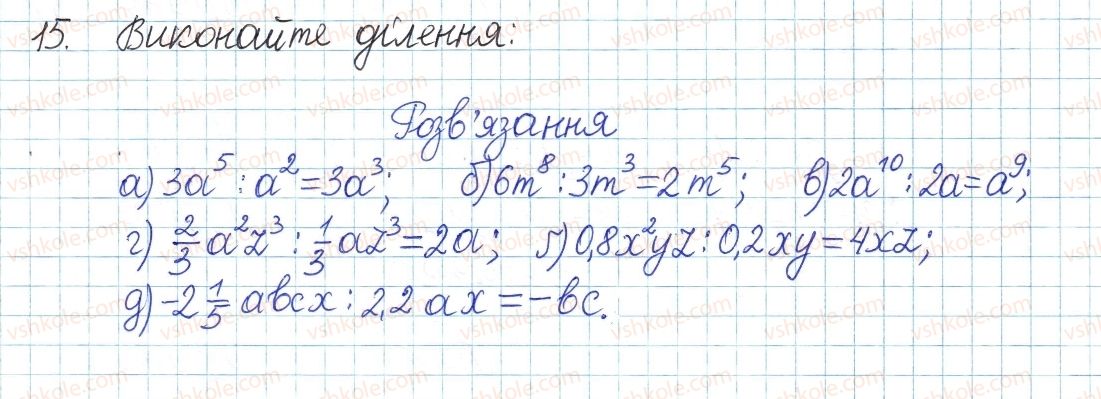 15. Виконайте ділення:
Розв'язання
а) 3a⁵ : a² = 3a³; б) 6m⁸ : 3m³ = 2m⁵; в) 2a¹⁰ : 2a = a⁹;
г) 2/3 a²z³ : 1/3 az³ = 2a; ґ) 0,8x²yz : 0,2xy = 4xz;
д) -2 1/5 abcx : 2,2ax = -bc.